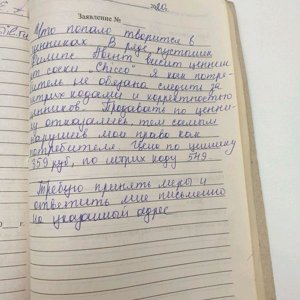 Заявление №
Что попало творится в
ценниках. В ряде пустышек
Филипс Авент висит ценник
от соски "Chicco". Я как потре-
битель не обязана следить за
штрих кодами и корректностью
ценников. Продавать по ценни-
ку отказались, тем самым
нарушив мои права как
потребителя. Цена по ценнику
359 руб, по штрих коду 549
Требую принять меры и
ответить мне письменно
на указанной адрес